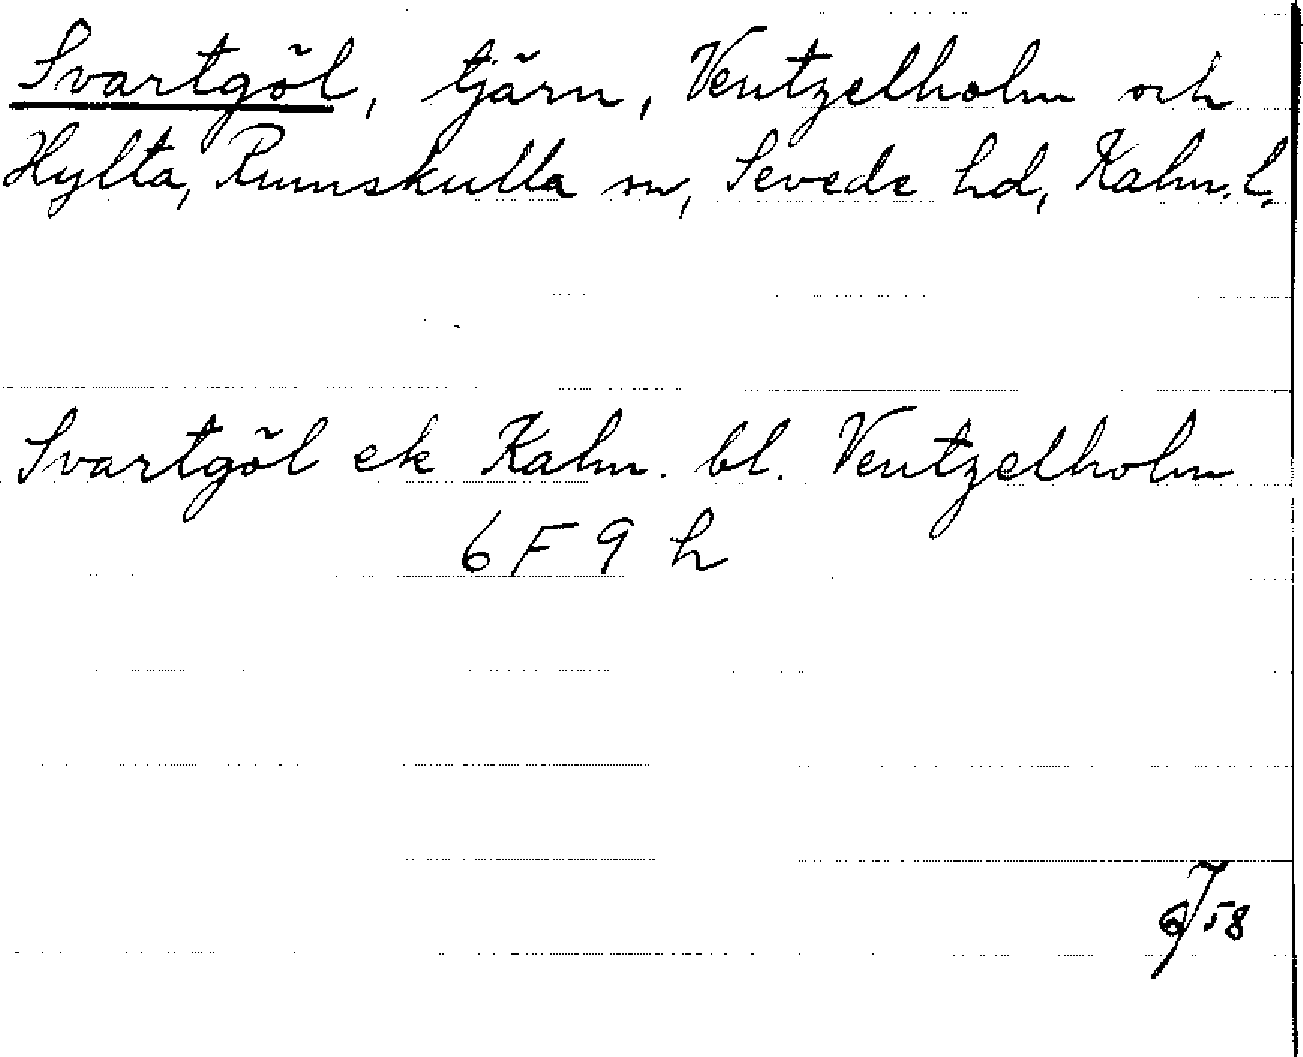 Svartgöl, tjärn, Ventzelholm och
Hylta, Rumskulla sn, Sevede hd, Kalm.l.
Svartgöl ek Kalm. bl. Ventzelholm
6 F 9 h